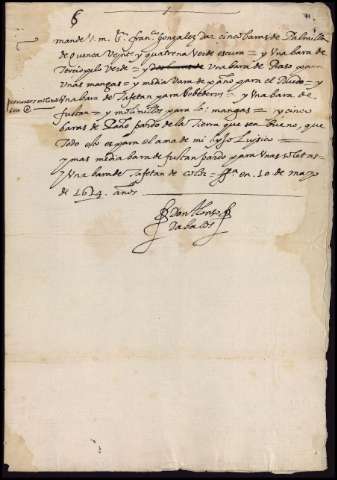 mande v. m. Sr. franco gonzalez dar cinco baras de Palmilla
de quenca veynte y quatrena verde escura = y Una bara de
Terciopelo verde = y Una bara de Raso para
unas mangas = y media vara de paño para el Ruedo = y
Una bara de tafetan para Ribetes = y Una bara de
fustan = y para las mangas = y cinco
baras de Paño pardo de la Tierra que sea bueno, que
Todo ello es para el ama de mi hijo Luysico =
y mas media bara de fustan pardo para Unas
Una bara de tafetan de color = ffa en. 10 de mayo
de 1614. años
Don Alonso
Dabalos